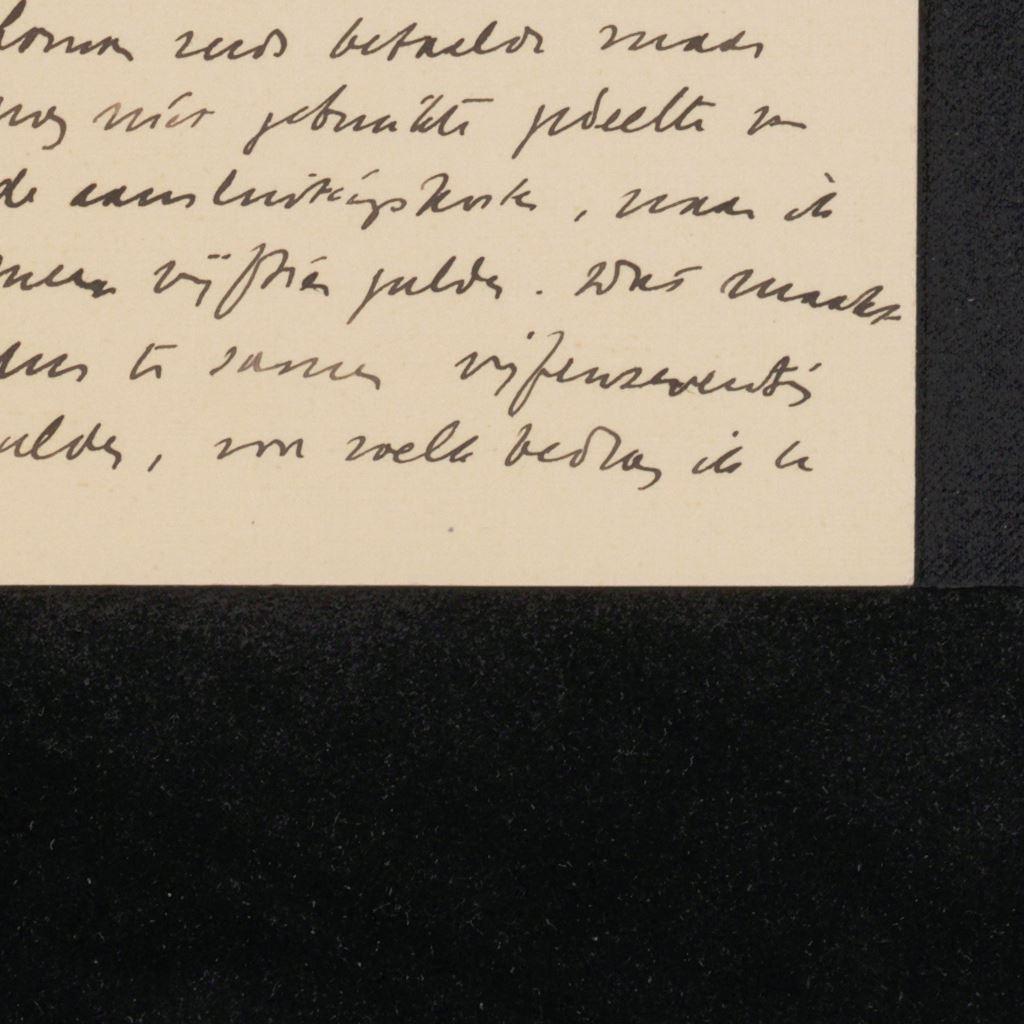 reeds betaalde maar
nog niet gebruikte gedeelte van
de aansluitingskosten, maar ik
meen vijftien gulden. Dat maakt
dus te samen vijfenzeventig
gulden, van welk bedrag ik U